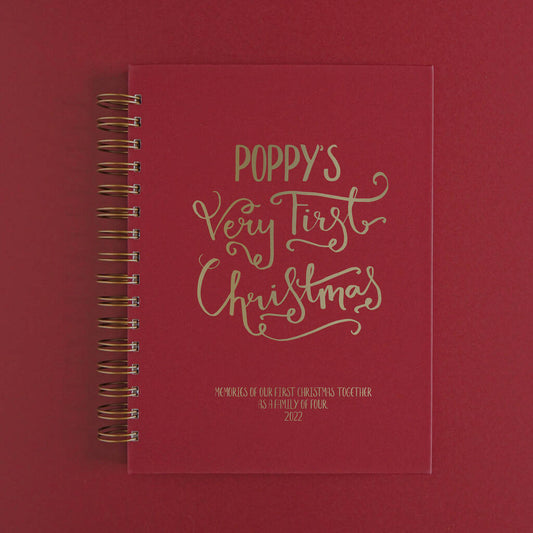 POPPY'S
Very First
Christmas
MEMORIES OF OUR FIRST CHRISTMAS TOGETHER
AS A FAMILY OF FOUR.
2022